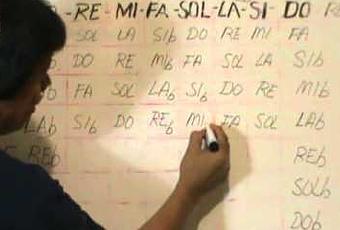 -RE-MI-FA-SOL-LA-SI-DO RE
SOL LA SIb DO RE MI FA
DO RE MIb FA SOL LA SIb
FA SOL LAb SIb DO RE MIb
LAb SIb DO REb MI FA SOL LAb
REb REb
SOLb
DOb